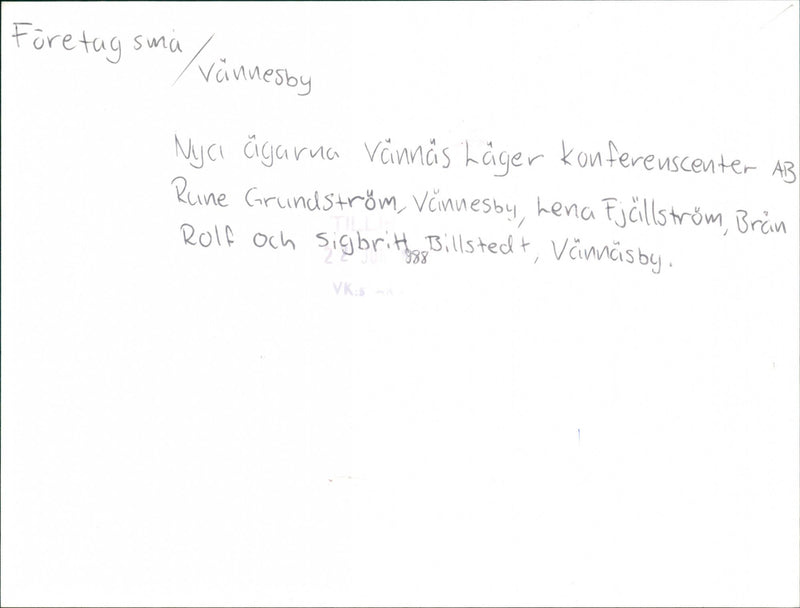 Företag små / Vännesby
Nya ägarna Vännäs Läger konferenscenter AB
Rune Grundström, Vännesby, Lena Fjällström, Brån
Rolf och Sigbritt Billstedt, Vännäsby.
22 988
VK:s